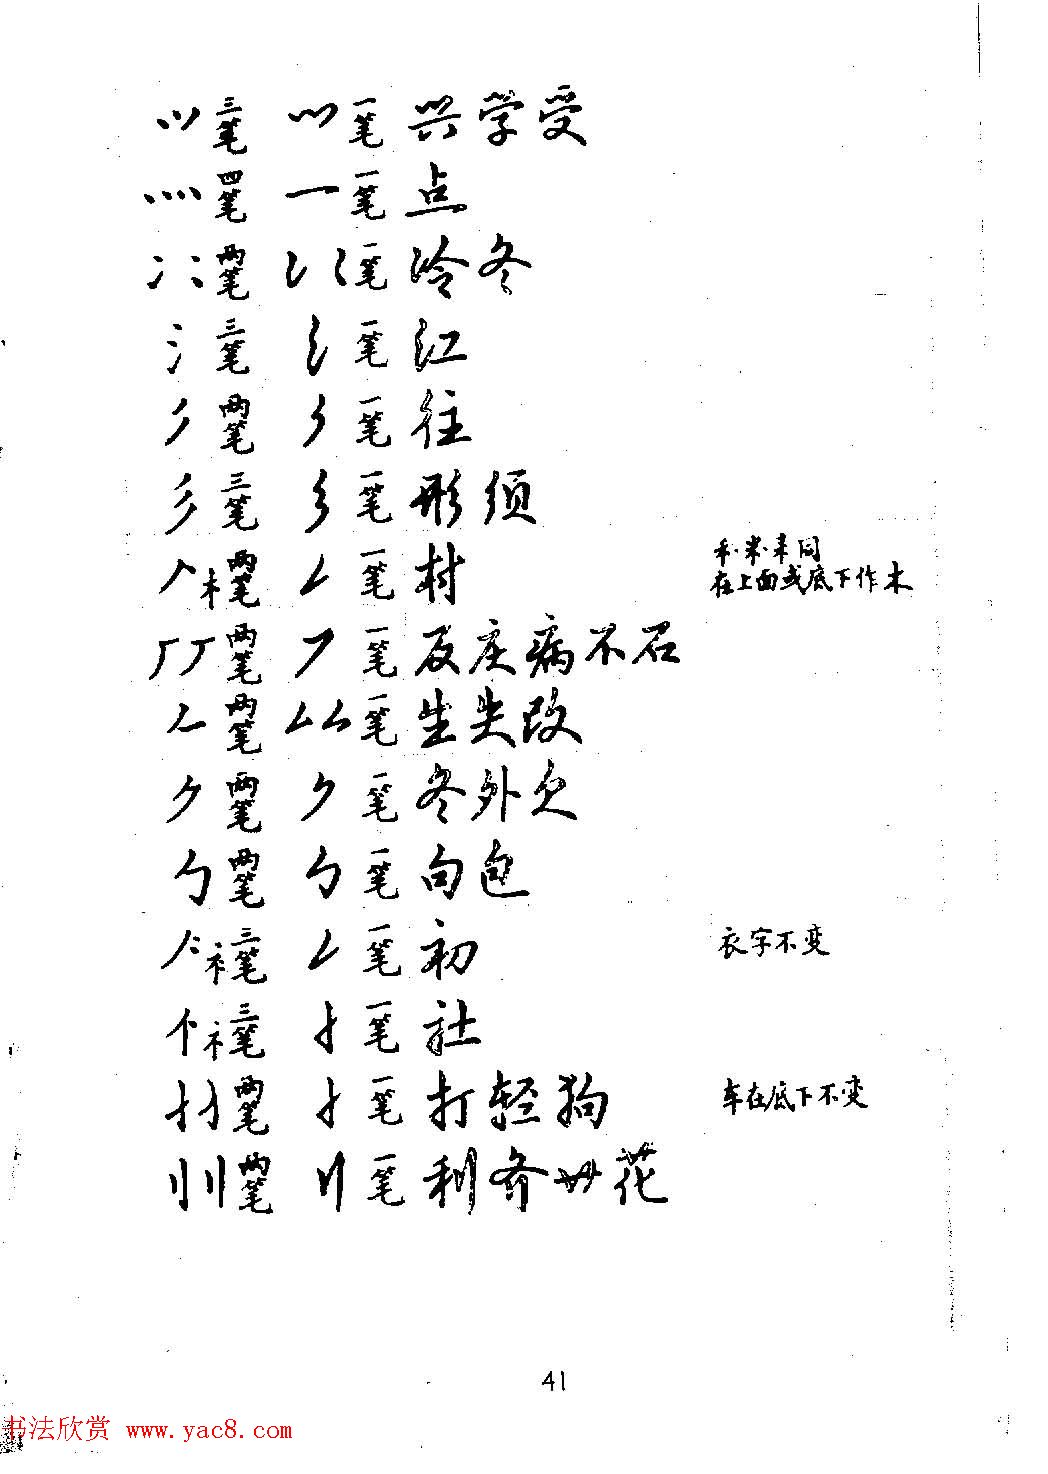 三笔 一笔 兴学受
灬 四笔 一 一笔 点
冫 两笔 一笔 冷冬
氵 三笔 一笔 江
两笔 一笔 往
彡 三笔 一笔 形须
木 两笔 一笔 村 禾.米.耒同
在上面或底下作木
厂 两笔 一笔 反庆病不石
𠂉 两笔 一笔 生失改
两笔 一笔 冬外欠
勹 两笔 一笔 句包
衤 三笔 一笔 初 衣字不变
礻 三笔 一笔 社
两笔 一笔 打轻狗 车在底下不变
刂 两笔 刂 一笔 利齐 花
41
书法欣赏 www.yac8.com